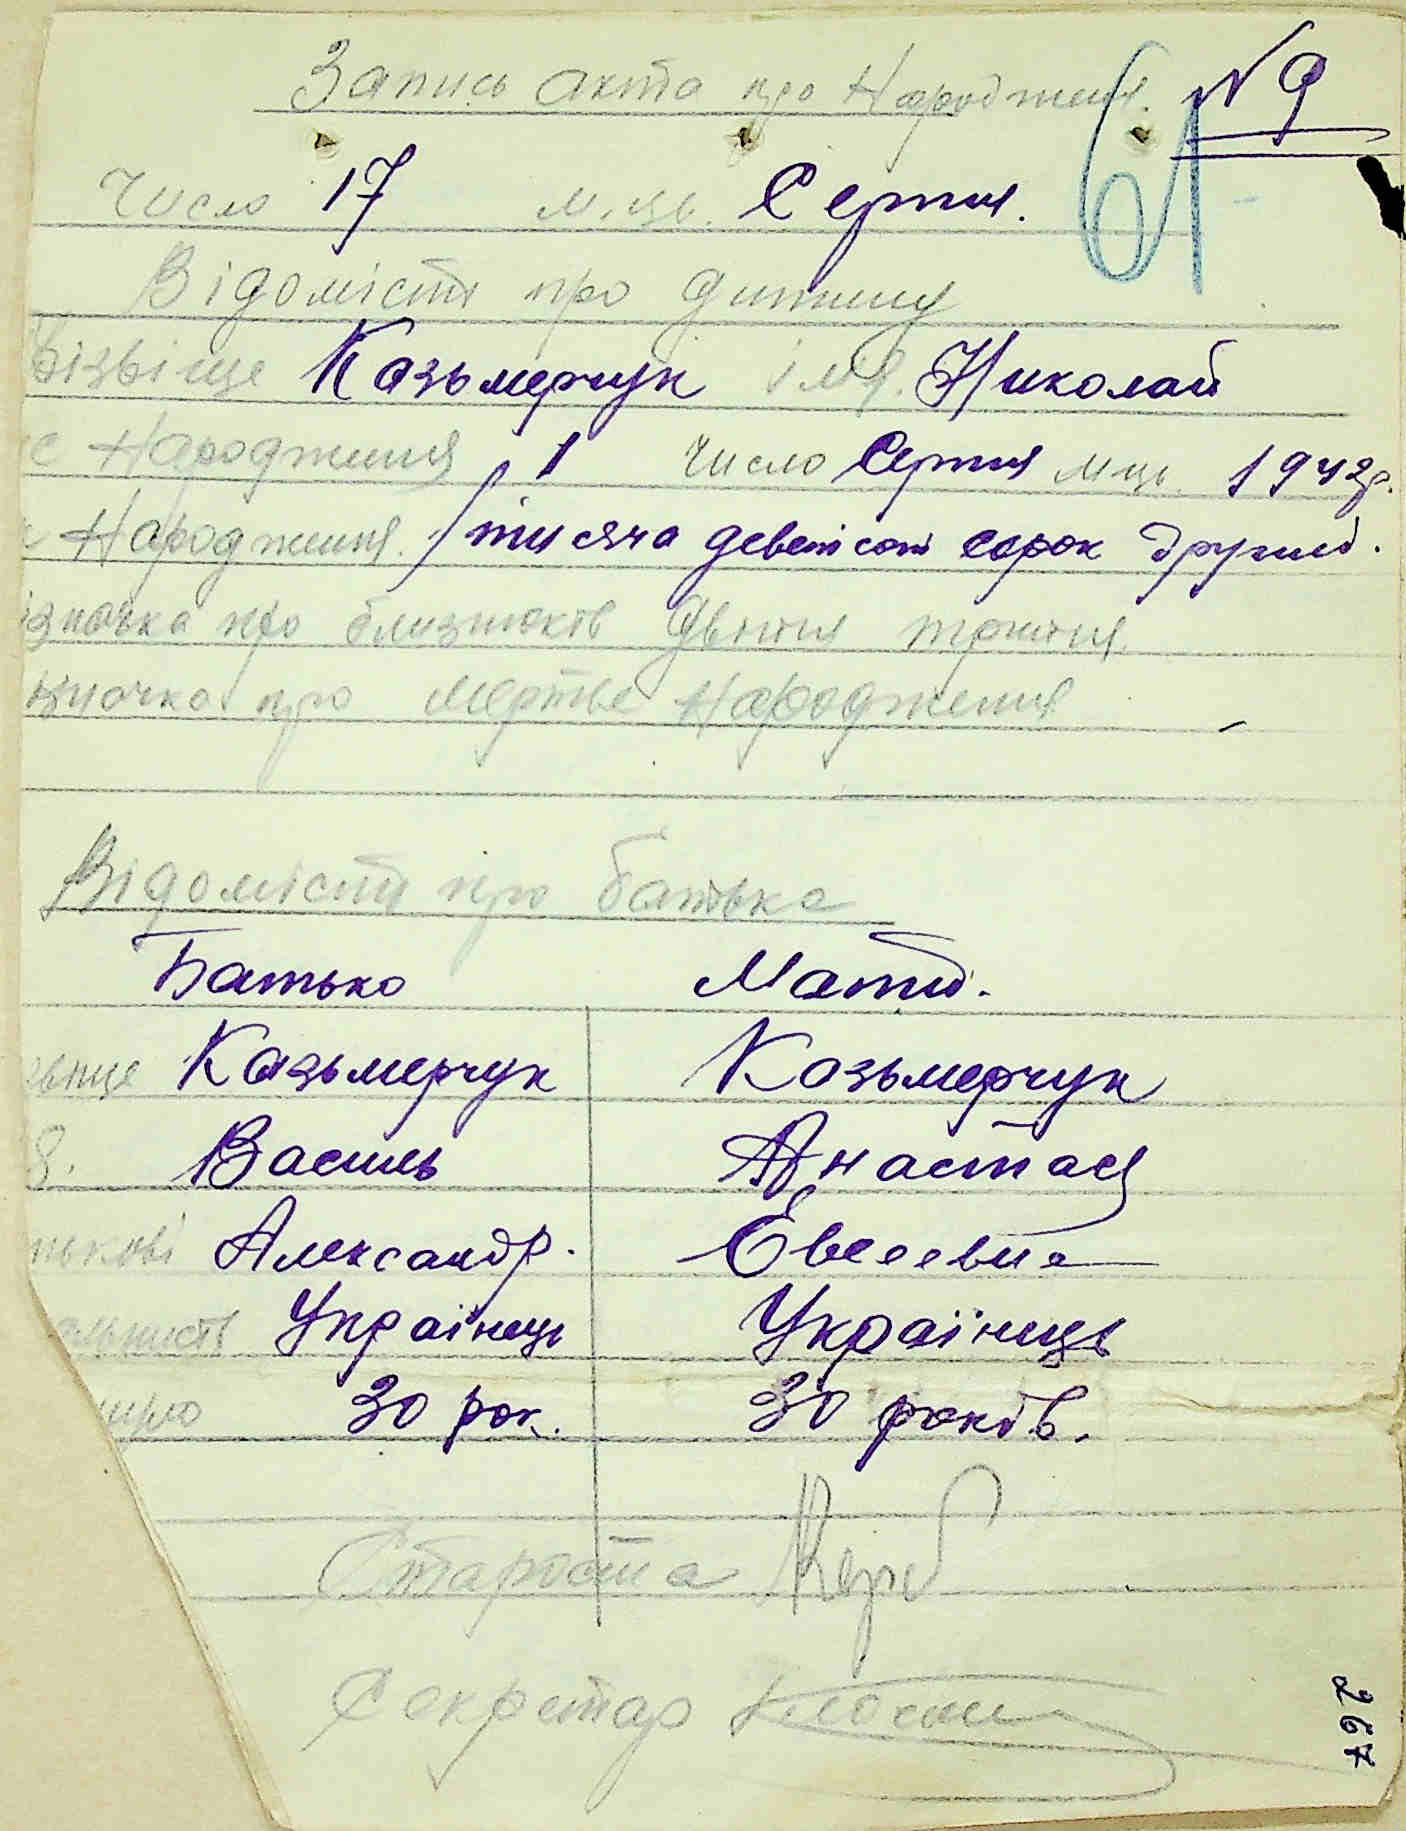 Запись акта про Народження. № 9
61
Число 17 м.ць. Серпня.
Відомісти про дитину
Візвіще Казьмерчук імя. Николай
с Народження 1 Число Серпня мць. 1942р.
Народження. тисяча деветсот сорок другий.
ізначка про близнюків двійня трійня.
значка про мертве народження
Відомісти про батька
Батько Мати.
звіще Казьмерчук Казьмерчук
Я. Василь Анастася
тькові Александр. Евсеевна
альность Українець Українець
30 рок. 30 років.
Староста
Секретар
267